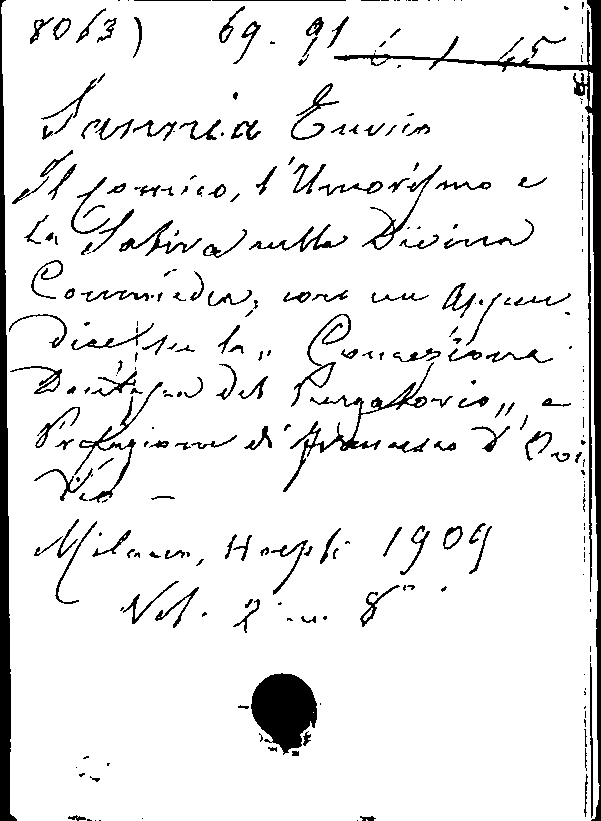 8063) 69. 91 6. 1. 45
Sannia Enrico
Il Comico, l'Umorismo e
la Satira nella Divina
Commedia, con un Appen.
dice su la „ Concezione
Dantesca del Purgatorio „ e
Prefazione di Francesco d'Ovi
dio —
Milano, Hoepli 1909
Vol. 2 in 8°